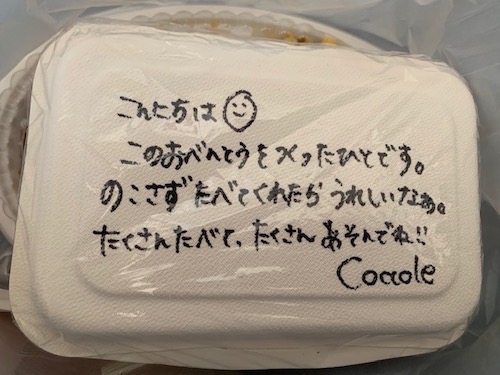 こんにちは☺
このおべんとうをつくったひとです。
のこさずたべてくれたらうれしいなぁ。
たくさんたべて、たくさんあそんでね!!
Coccole